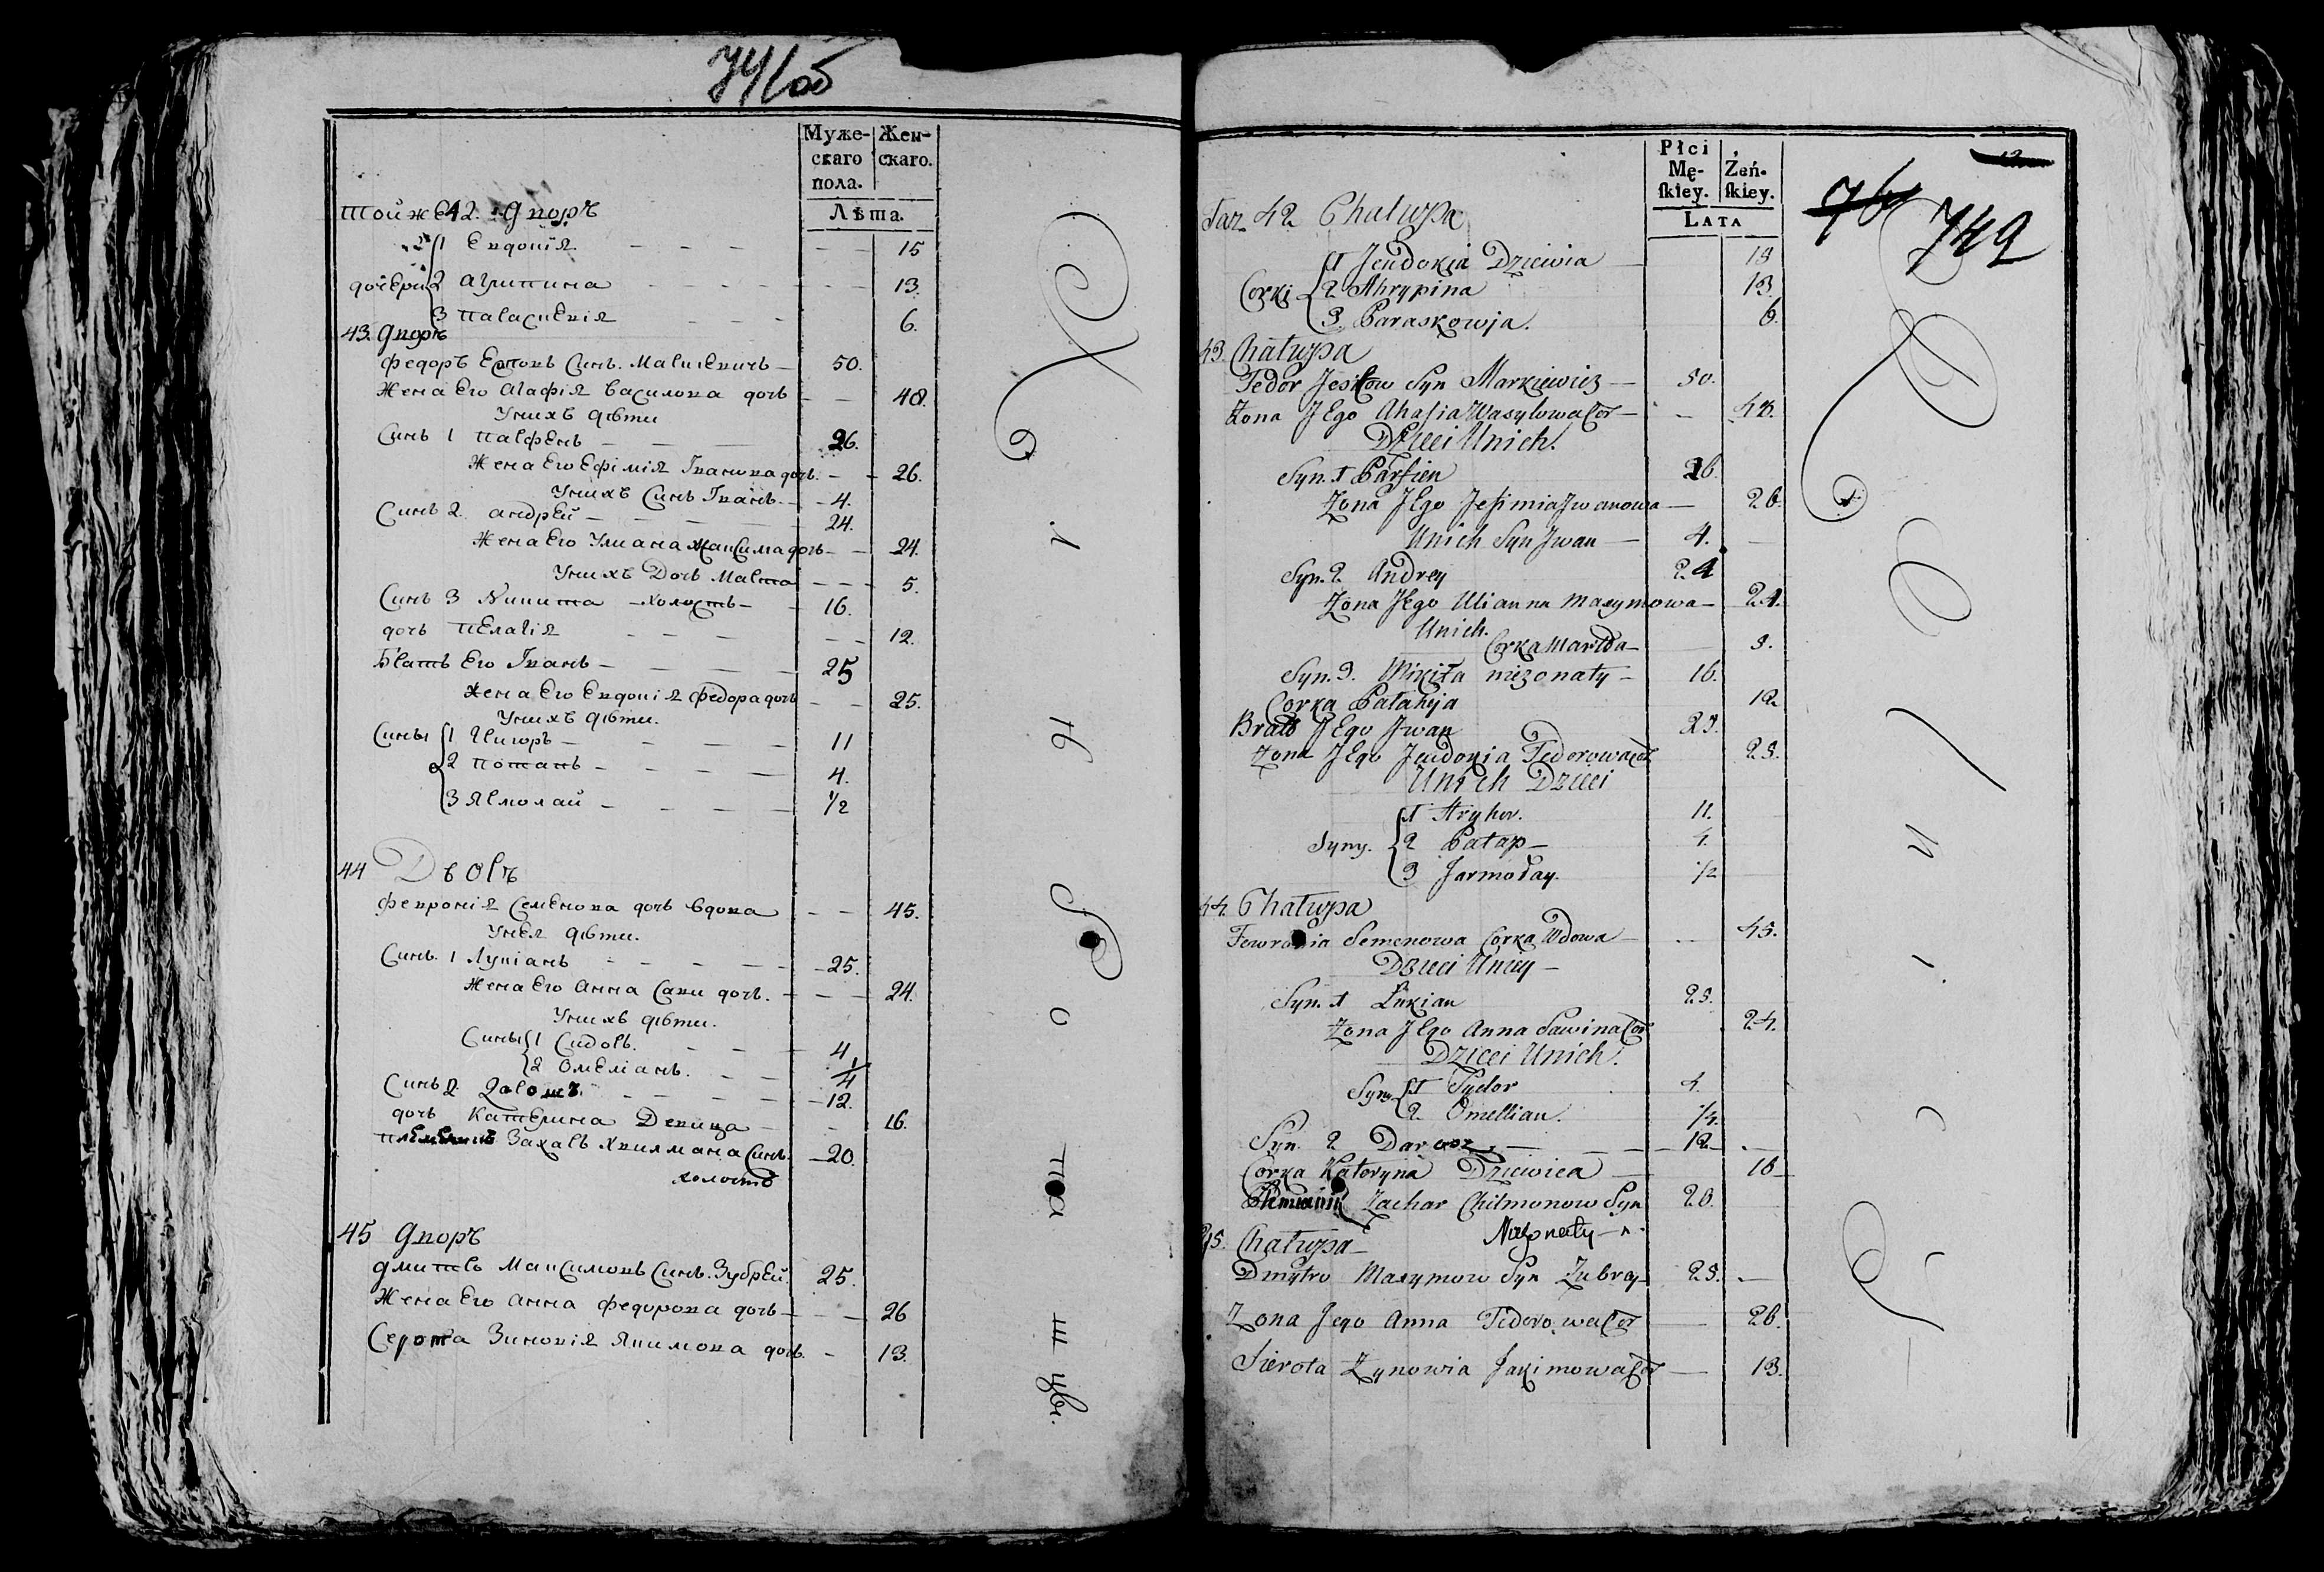 741об
Муже-скаго пола. Жен-скаго.
Лѣта.
тойже 42. дворъ
1 Евдокія 15
дочери 2 Агрипина 13.
3 Параскевія 6.
43. дворъ
Федоръ Есповъ Синъ. Маркевичь 50.
Жена Его Агафія Василова дочь 48.
Унихъ дѣти
Синъ 1 Парфенъ 26.
Жена Его Ефімія Іванова дочь. 26.
Унихъ Синъ Іванъ. 4.
Синъ 2 Андрей 24.
Жена Его Улиана Максима дочь 24.
Унихъ Дочь Марта 5.
Синъ 3 Никита холостъ 16.
дочь Пелагія 12.
Братъ Его Іванъ 25
Жена Его Евдокія Федора дочь 25.
Унихъ дѣти.
Сины 1 Григоръ 11
2 Потапъ 4.
3 Ярмолай 1/2
44 Дворъ
Февронія Семенова дочь вдова 45.
Унея дѣти.
Синъ. 1 Лукіанъ 25.
Жена Его Анна Сави дочь. 24.
Унихъ дѣти.
Сины 1 Сидоръ. 4
2 Омеліанъ. 1/4
Синъ 2 12.
дочь Катерина Девица 16.
племеникъ Захаръ Хвилмана Синъ. 20.
холостъ
45 дворъ
Дмитръ Максимовъ Синъ. Зубрей. 25.
Жена Его Анна Федорова дочь 26
Серота Зиновія Якимова дочь. 13.
Płci Mę-ſkiey. Żeń-ſkiey.
LATA
76 749
Taz 42 Chałupa
1 Jeudokia Dziewia 15
Corki 2 Ahrypina 13.
3. Paraskowja. 6.
43. Chałupa
Fedor Jesipow Syn Markiewicz 50.
Zona JEgo Ahafia Wasylowa Cor 48.
Dzieci Unich.
Syn. 1 Parfien 26.
Zona JEgo Jefimia Jwanowa 26.
Unich Syn Jwan 4.
Syn. 2 Andrey 24
Zona JEgo Ulianna Maxymowa 24.
Unich.
Corka Marta 5.
Syn. 3. Mikita niezonaty 16.
Corka Pałahija 12
Brat JEgo Jwan 25.
Zona JEgo Jeudokia Fedorowa Cor 25.
Unich Dzieci
1 Hryhor. 11.
Syny. 2 Patap 4
3 Jarmołay. 1/2
44. Chałupa
Fewronia Semenowa Corka Wdowa 45.
Dzieci Uniey
Syn. 1 Łukian 25.
Zona JEgo Anna Sawina Cor 24.
Dzieci Unich.
Syny 1 Sydor 4.
2. Omellian. 1/4.
Syn. 2 12
Corka Kateryna Dziewica 16
Plemianik Zachar Chilmonow Syn 20.
Niezonaty
45. Chałupa
Dmytro Maxymow Syn Zubrey 25.
Zona Jego Anna Fedorowa Cor 26.
Sierota Zynowia Jakimowa Cor 13.